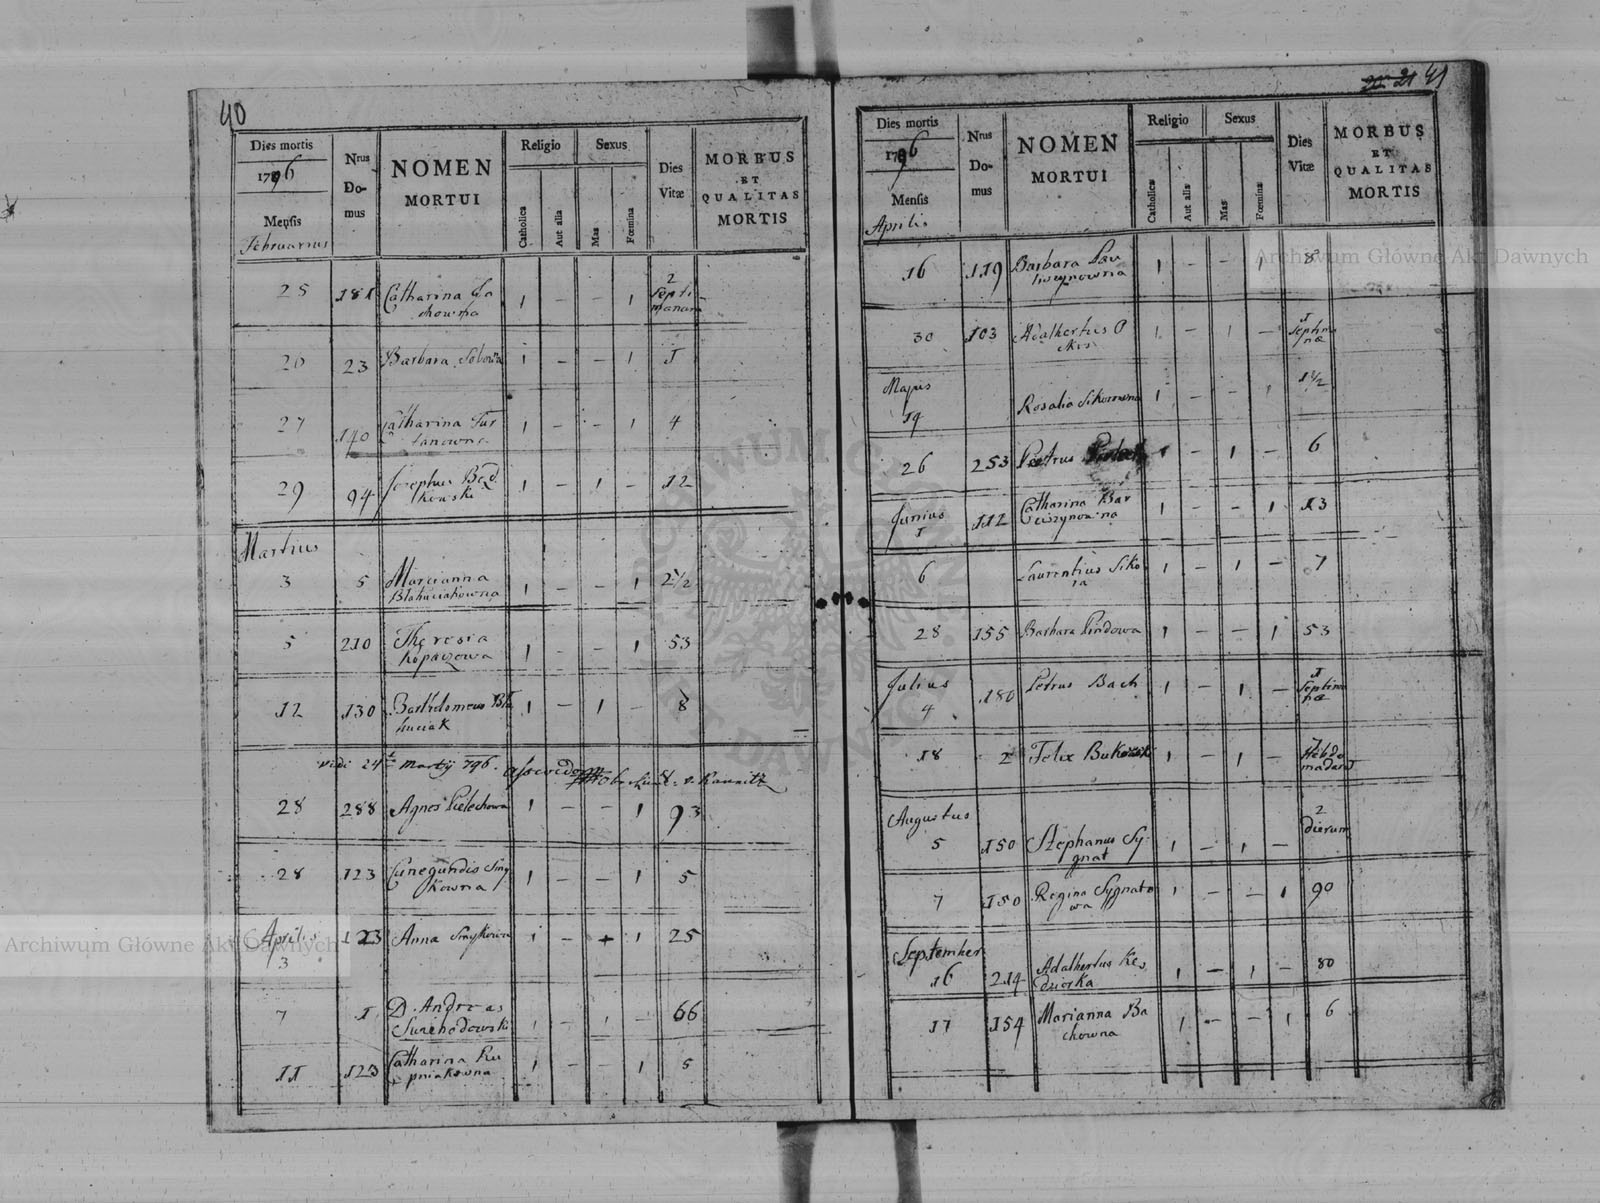 40
Dies mortis
1796
Mensis
Februarius
Nrus
Do-
mus
NOMEN
MORTUI
Religio
Catholica
Aut alia
Sexus
Mas
Fœmina
Dies
Vitæ
MORBUS
ET
QUALITAS
MORTIS
25 181 Catharina
chowna 1 - - 1 2
Septi
manarum
26 23 Barbara 1 - - 1 1
27 140 Catharina Fur
tanowna 1 - - 1 4
29 94 Josephus Bed
kowski 1 - 1 - 12
Martius
3 5 Marianna
Blahuciakowna 1 - - 1 2 1/2
5 210 Theresia
Kopaczowa 1 - - 1 53
12 130 Bartholomeus Bla
huciak 1 - 1 - 8
vidi 24 Martij 796
28 288 Agnes Pielechowa 1 - - 1 93
28 123 Cunegundis Smy
kowna 1 - - 1 5
Aprilis
3 123 Anna Smykowa 1 - + 1 25
7 1 D. Andreas
Suchodowski 1 - 1 - 66
11 123 Catharina Ku
pniakowna 1 - - 1 5
41
Dies mortis
1796
Mensis
Aprilis
Nrus
Do-
mus
NOMEN
MORTUI
Religio
Catholica
Aut alia
Sexus
Mas
Fœmina
Dies
Vitæ
MORBUS
ET
QUALITAS
MORTIS
16 119 Barbara Law
1 - - 1 8
30 103 Adalbertus 1 - 1 - 1
Septima
næ
Majus
14 Rosalia Sikorowna 1 - - 1 1 1/2
26 253 Petrus 1 - 1 - 6
Junius
1 112 Catharina Bar
ciszynowna 1 - - 1 13
6 Laurentius Siko
ra 1 - 1 - 7
28 155 Barbara Pindowa 1 - - 1 53
Julius
4 180 Petrus Bach 1 - 1 - 1
Septima
næ
18 2 Felix Bukowski 1 - 1 - 7
Hebdo
madarum
Augustus
5 150 Stephanus Sy
gnat 1 - 1 - 2
dierum
7 150 Regina Sygnato
wa 1 - - 1 90
September
16 214 Adalbertus Kę
dziorka 1 - 1 - 80
17 154 Marianna Ba
chowna 1 - - 1 6
Archiwum Główne Akt Dawnych
Archiwum Główne Akt Dawnych